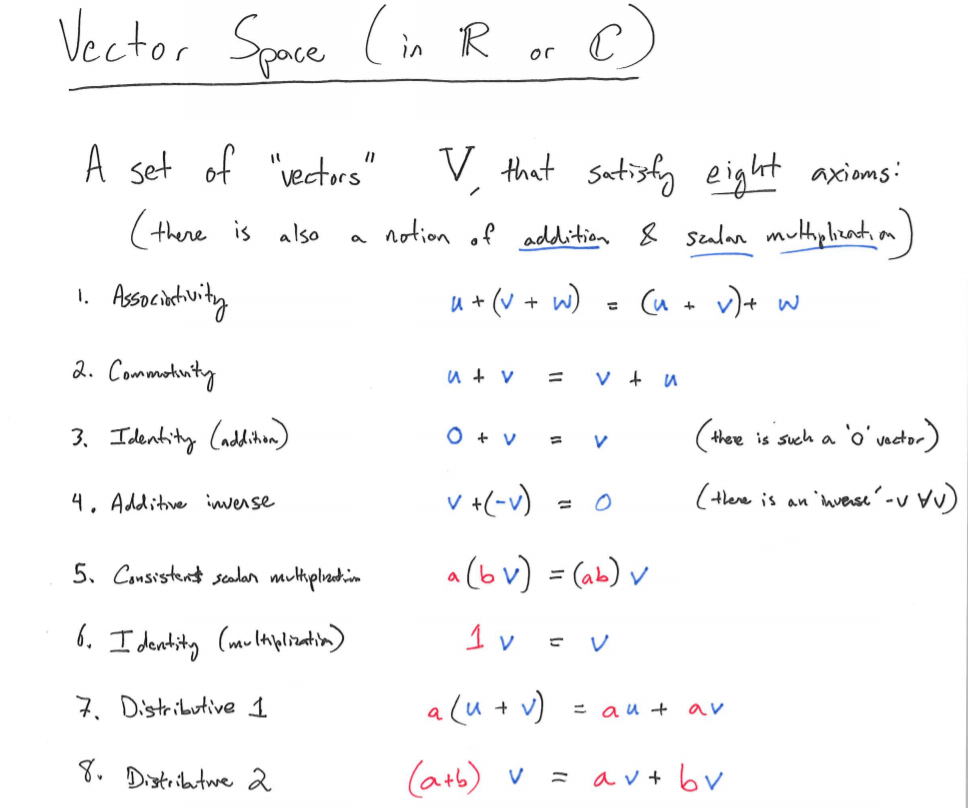 Vector Space (in ℝ or ℂ)
A set of "vectors" V, that satisfy eight axioms:
(there is also a notion of addition & scalar multiplication)
1. Associativity u + (v + w) = (u + v) + w
2. Commutivity u + v = v + u
3. Identity (addition) 0 + v = v (there is such a '0' vector)
4. Additive inverse v + (-v) = 0 (there is an 'inverse' -v ∀v)
5. Consistent scalar multiplication a(bv) = (ab) v
6. Identity (multiplication) 1 v = v
7. Distributive 1 a(u + v) = au + av
8. Distributive 2 (a+b) v = av + bv